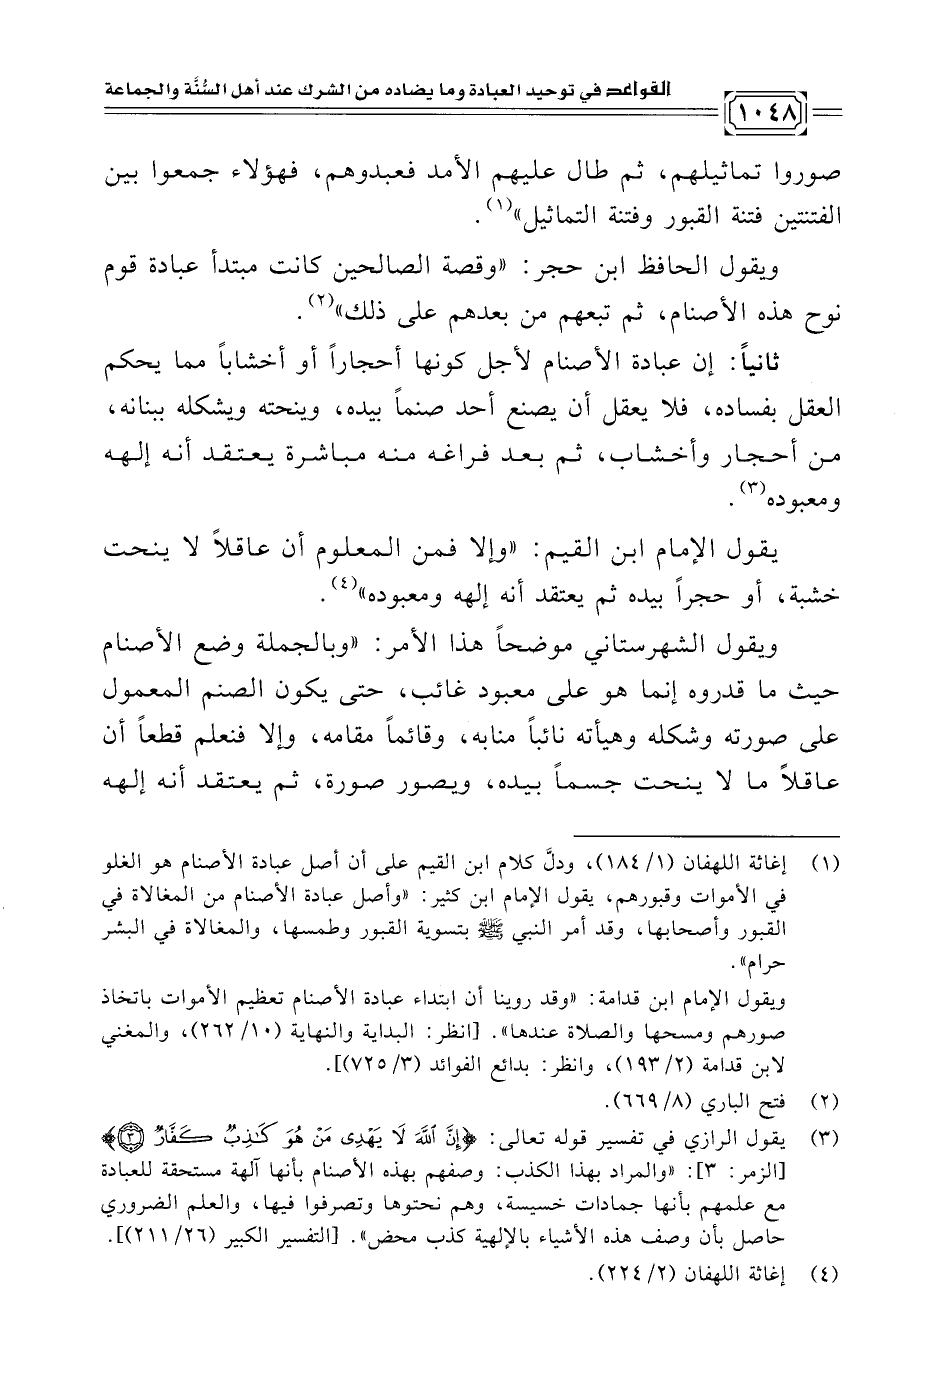 القواعد في توحيد العبادة وما يضاده من الشرك عند أهل السُّنَّة والجماعة
١٠٤٨
صوروا تماثيلهم، ثم طال عليهم الأمد فعبدوهم، فهؤلاء جمعوا بين
الفتنتين فتنة القبور وفتنة التماثيل»(١).
ويقول الحافظ ابن حجر: «وقصة الصالحين كانت مبتدأ عبادة قوم
نوح هذه الأصنام، ثم تبعهم من بعدهم على ذلك»(٢).
ثانياً: إن عبادة الأصنام لأجل كونها أحجاراً أو أخشاباً مما يحكم
العقل بفساده، فلا يعقل أن يصنع أحد صنماً بيده، وينحته ويشكله ببنانه،
من أحجار وأخشاب، ثم بعد فراغه منه مباشرة يعتقد أنه إلهه
ومعبوده(٣).
يقول الإمام ابن القيم: «وإلا فمن المعلوم أن عاقلاً لا ينحت
خشبة، أو حجراً بيده ثم يعتقد أنه إلهه ومعبوده»(٤).
ويقول الشهرستاني موضحاً هذا الأمر: «وبالجملة وضع الأصنام
حيث ما قدروه إنما هو على معبود غائب، حتى يكون الصنم المعمول
على صورته وشكله وهيأته نائباً منابه، وقائماً مقامه، وإلا فنعلم قطعاً أن
عاقلاً ما لا ينحت جسماً بيده، ويصور صورة، ثم يعتقد أنه إلهه
(١) إغاثة اللهفان (١/ ١٨٤)، ودلَّ كلام ابن القيم على أن أصل عبادة الأصنام هو الغلو
في الأموات وقبورهم، يقول الإمام ابن كثير: «وأصل عبادة الأصنام من المغالاة في
القبور وأصحابها، وقد أمر النبي ﷺ بتسوية القبور وطمسها، والمغالاة في البشر
حرام».
ويقول الإمام ابن قدامة: «وقد روينا أن ابتداء عبادة الأصنام تعظيم الأموات باتخاذ
صورهم ومسحها والصلاة عندها». [انظر: البداية والنهاية (١٠/ ٢٦٢)، والمغني
لابن قدامة (٢/ ١٩٣)، وانظر: بدائع الفوائد (٣/ ٧٢٥)].
(٢) فتح الباري (٨/ ٦٦٩).
(٣) يقول الرازي في تفسير قوله تعالى: ﴿إِنَّ ٱللَّهَ لَا يَهْدِى مَنْ هُوَ كَـٰذِبٌ كَفَّارٌ ٣﴾
[الزمر: ٣]: «والمراد بهذا الكذب: وصفهم بهذه الأصنام بأنها آلهة مستحقة للعبادة
مع علمهم بأنها جمادات خسيسة، وهم نحتوها وتصرفوا فيها، والعلم الضروري
حاصل بأن وصف هذه الأشياء بالإلهية كذب محض». [التفسير الكبير (٢٦/ ٢١١)].
(٤) إغاثة اللهفان (٢/ ٢٢٤).